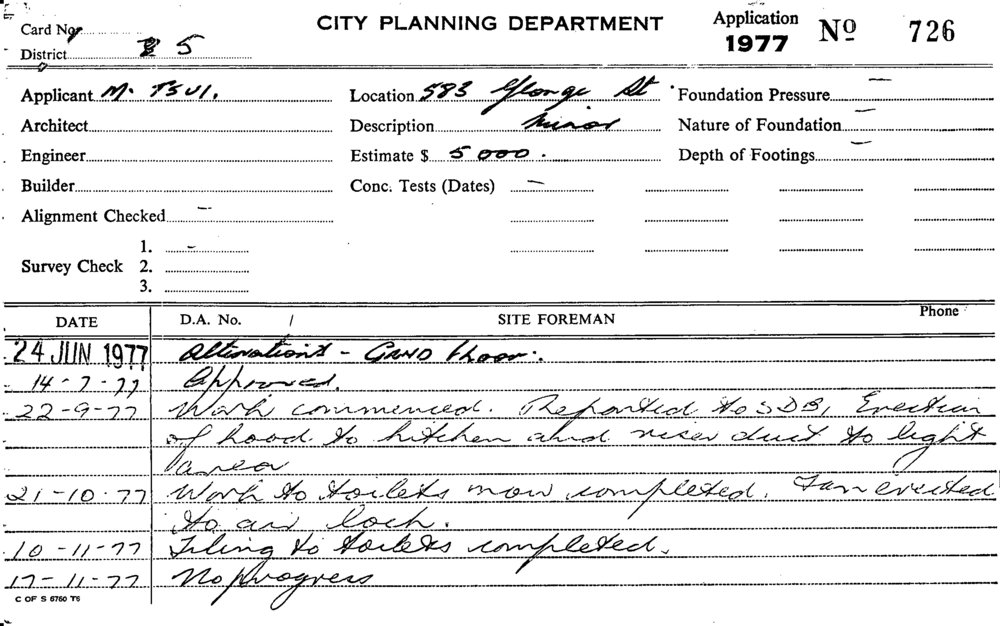 Card No.
CITY PLANNING DEPARTMENT
Application 1977 No 726
District 5
Applicant M. TSUI.
Location 583 George St
Foundation Pressure —
Architect
Description Minor
Nature of Foundation —
Engineer
Estimate $ 5 000.
Depth of Footings —
Builder
Conc. Tests (Dates) —
Alignment Checked —
Survey Check
1. -
2.
3.
DATE D.A. No. / SITE FOREMAN Phone
24 JUN 1977 Alterations - GRND floor.
14-7-77 Approved.
22-9-77 Work commenced. Reported to SDB, Erection
of hood to kitchen and riser duct to light
area
21-10-77 Work to toilets now completed. Fan erected
to air lock.
10-11-77 Tiling to toilets completed.
17-11-77 No progress
C OF S 6760 T6